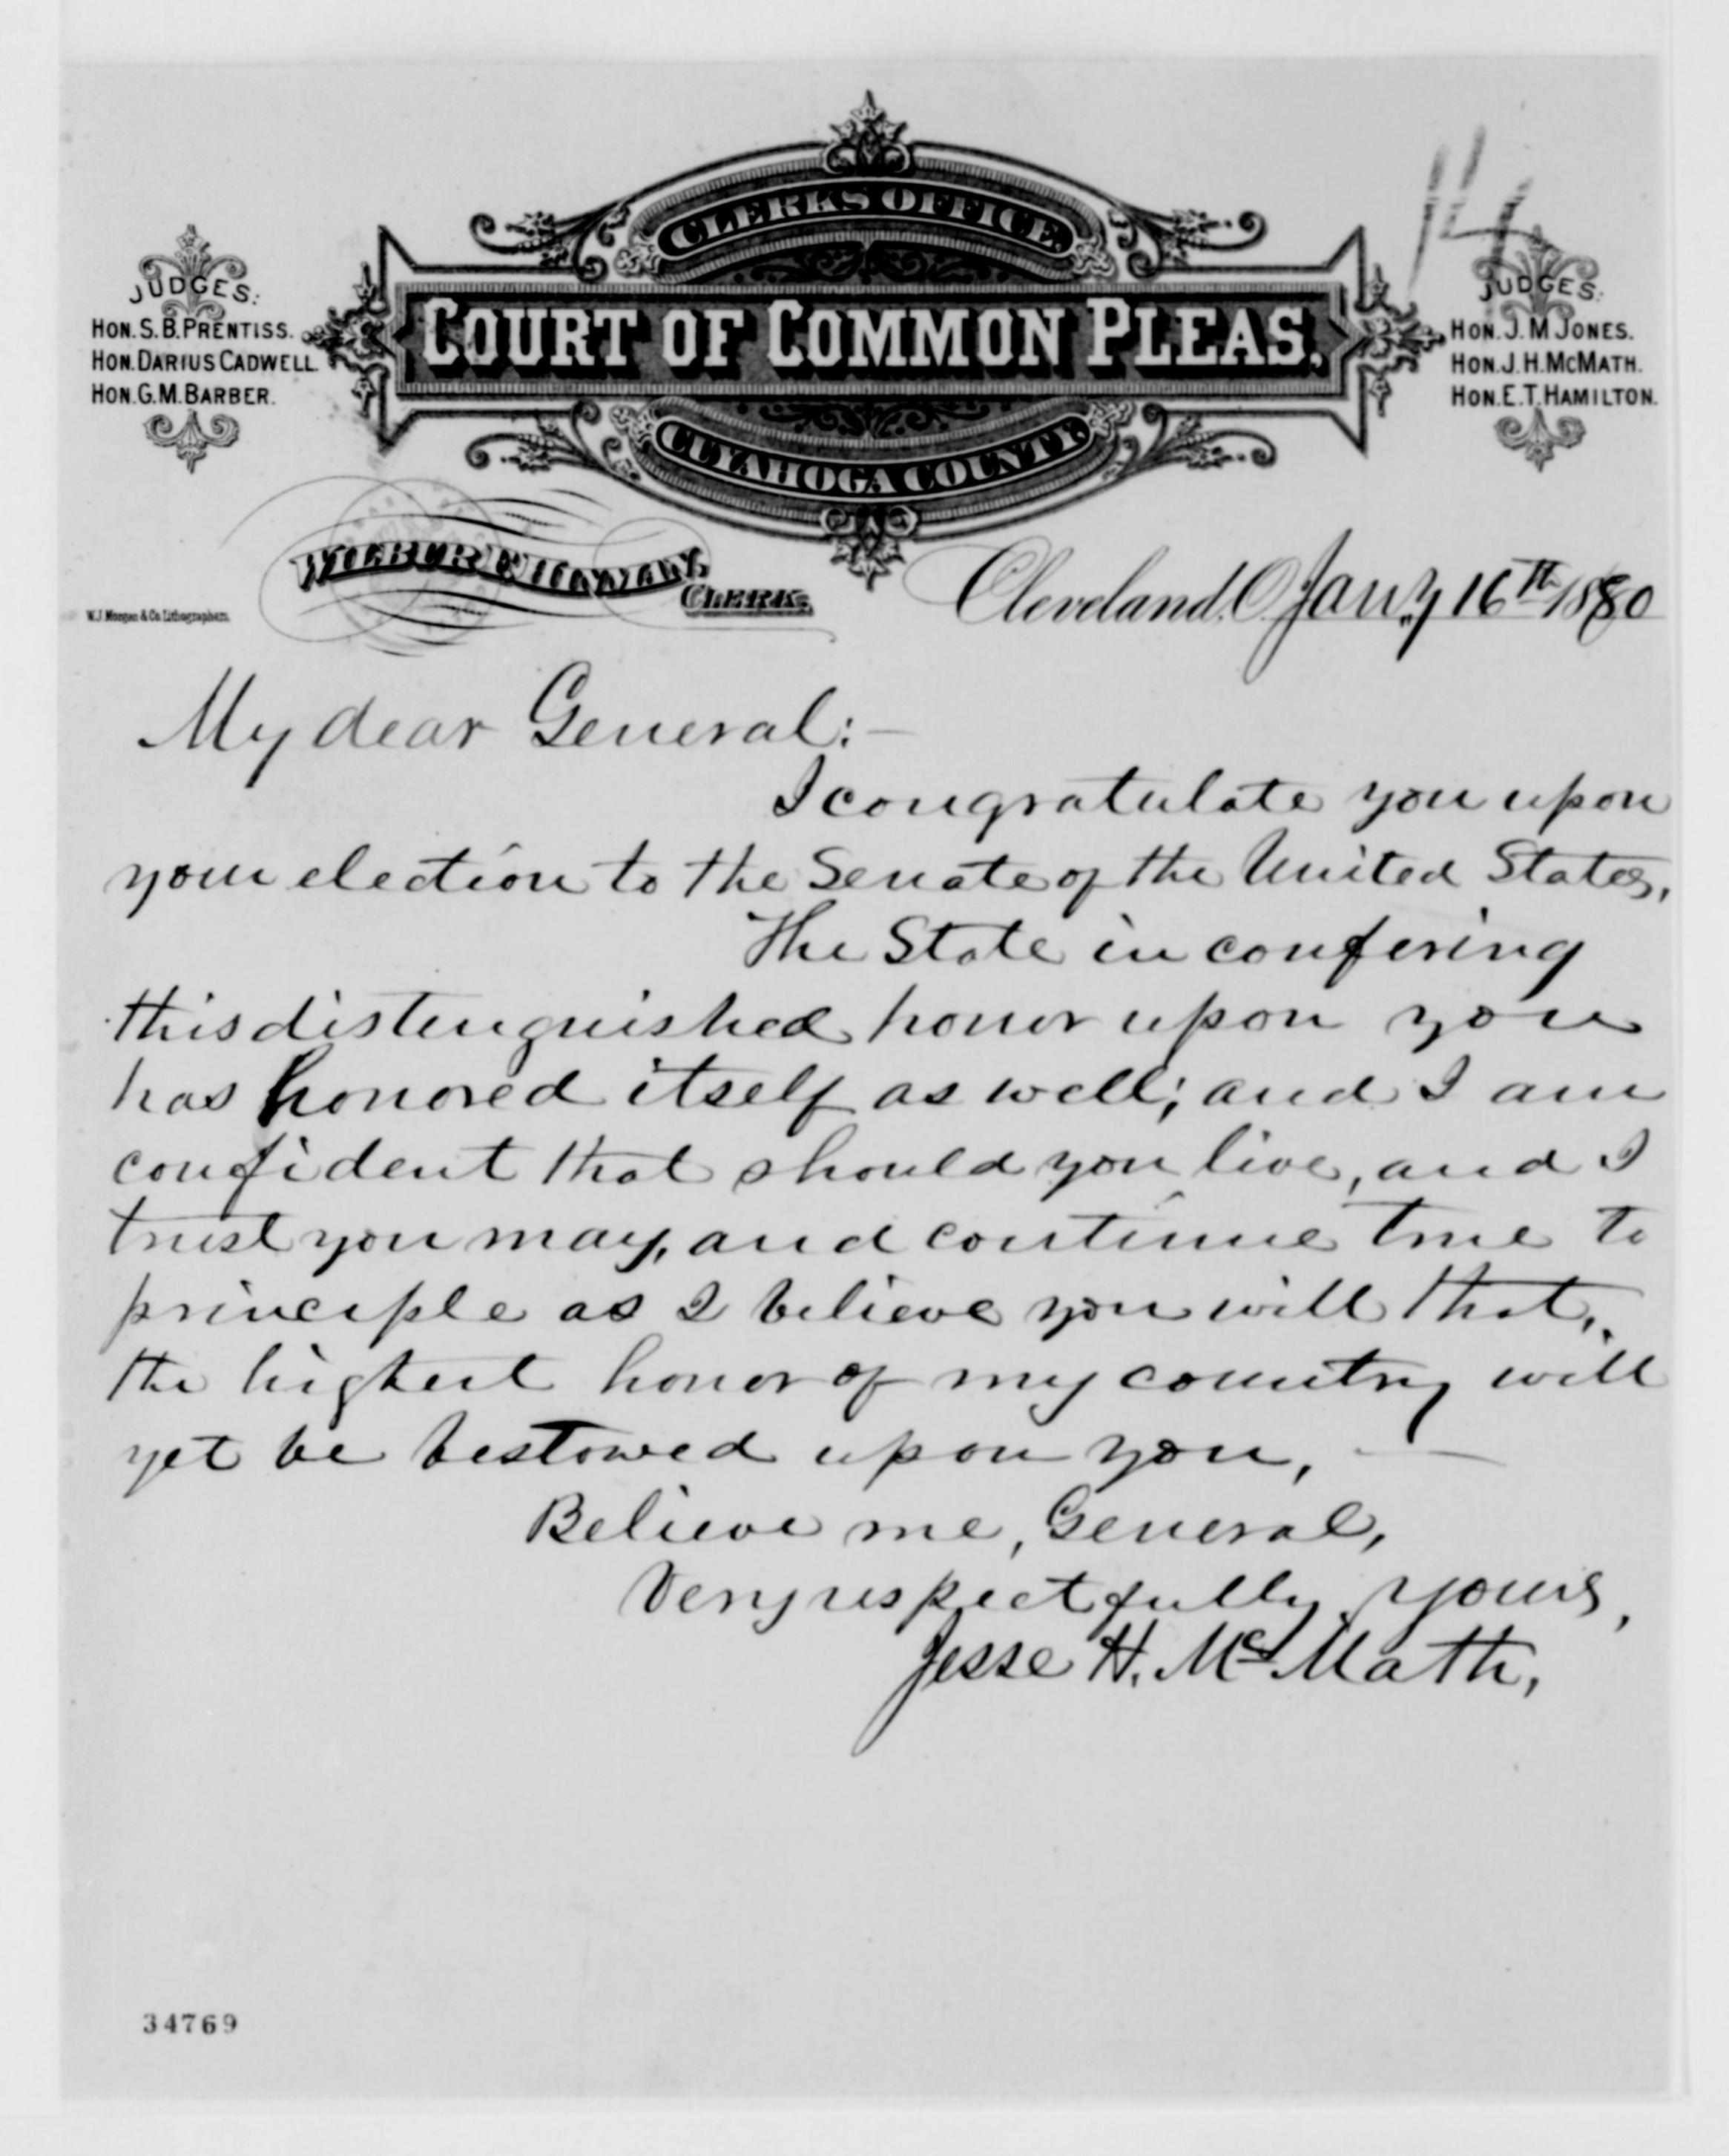 14
CLERKS OFFICE
COURT OF COMMON PLEAS.
CUYAHOGA COUNTY
JUDGES:
HON. S. B. PRENTISS.
HON. DARIUS CADWELL.
HON. G. M. BARBER.
JUDGES:
HON. J. M JONES.
HON. J. H. MCMATH.
HON. E. T. HAMILTON.
WILBUR F. HINMAN,
CLERK.
W.J. Morgan & Co. Lithographers.
Cleveland, O. Jany 16th 1880
My dear General:—
I congratulate you upon
your election to the Senate of the United States.
The State in confering
this distinguished honor upon you
has honored itself as well; and I am
confident that should you live, and I
trust you may, and continue true to
principle as I believe you will that,
the highest honor of my country will
yet be bestowed upon you, —
Believe me, General,
Very respectfully yours,
Jesse H. McMath,
34769